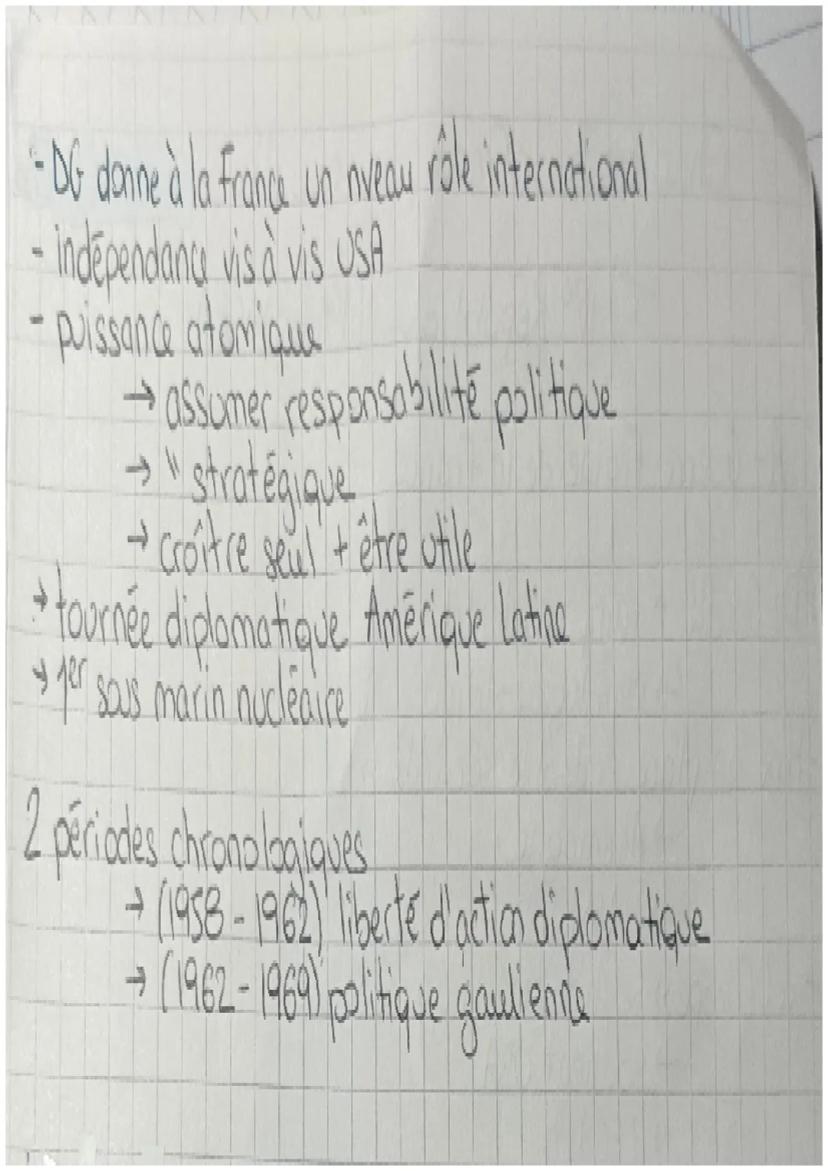 - DG donne à la France un nveau rôle international
- indépendance vis à vis USA
- puissance atomique
→ assumer responsabilité politique
→ " stratégique
→ croître seul + être utile
→ tournée diplomatique Amérique Latine
→ 1er sous marin nucléaire
2 périodes chronologiques
→ (1958 - 1962) liberté d'action diplomatique
→ (1962 - 1969) politique gaullienne